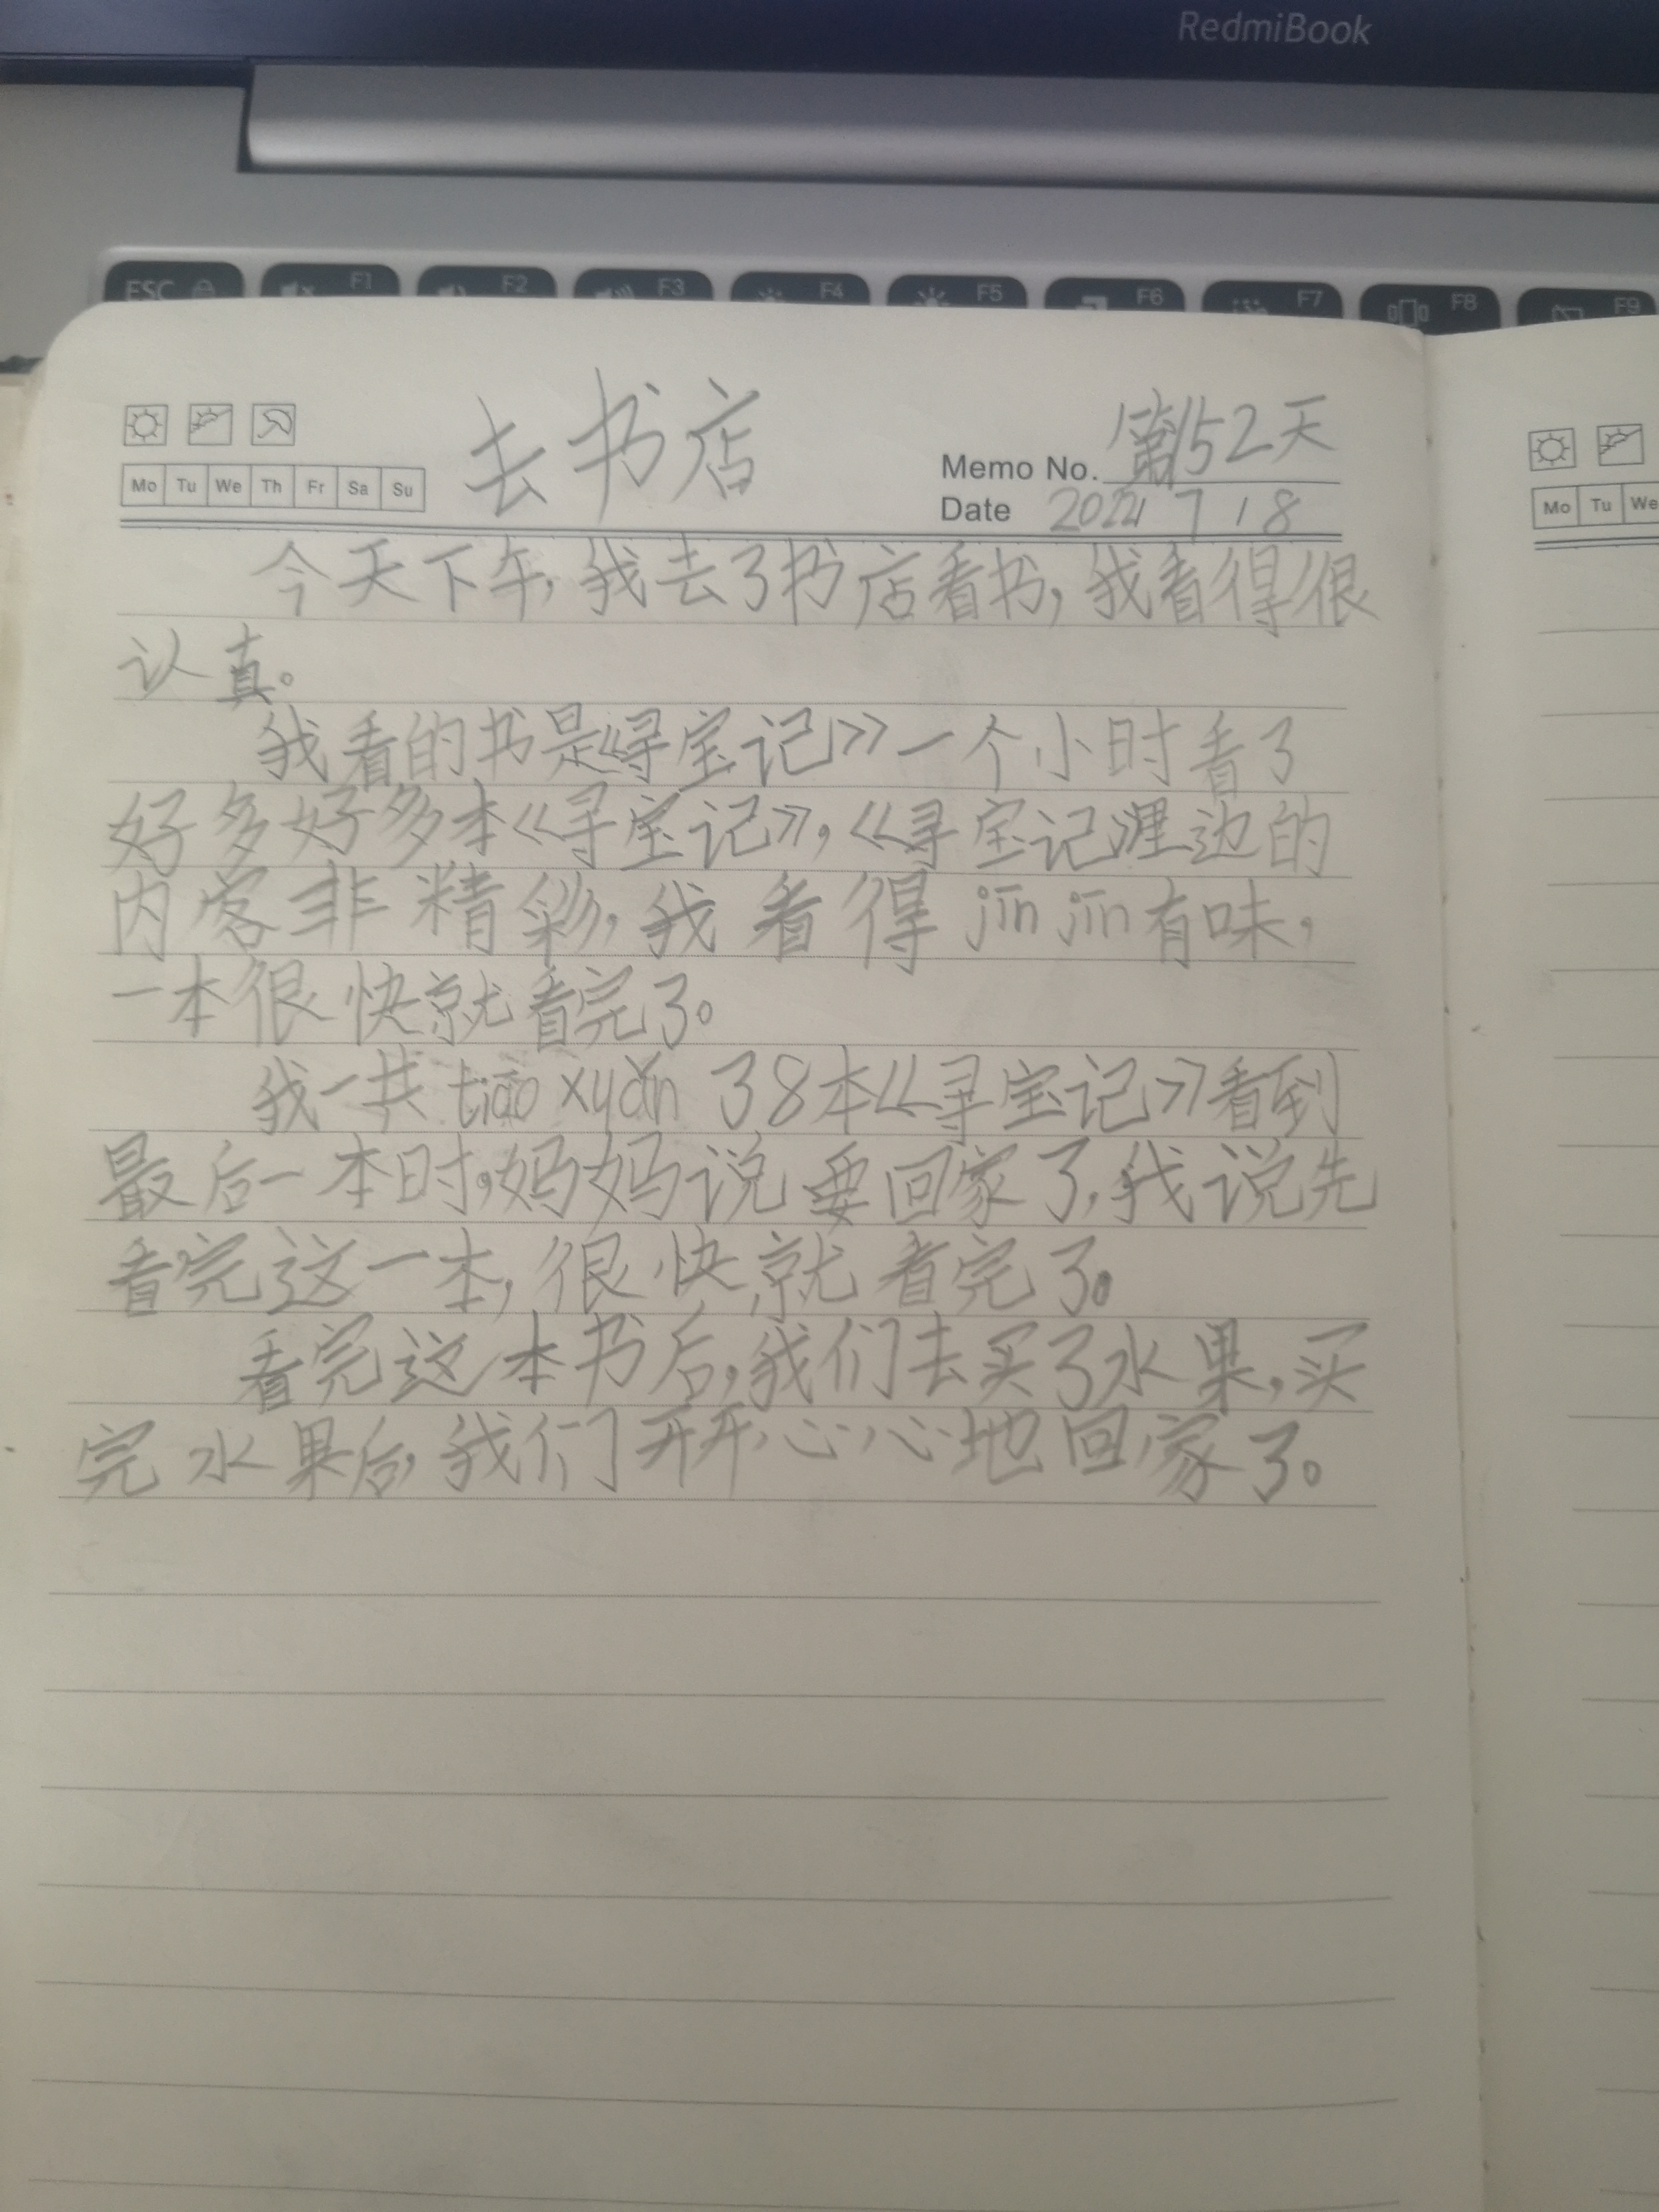 RedmiBook
ESC F1 F2 F3 F4 F5 F6 F7 F8 F9
去书店
Memo No. 第52天
Mo Tu We Th Fr Sa Su
Date 2024 7 18
Mo Tu We
今天下午,我去了书店看书,我看得很
认真。
我看的书是《寻宝记》一个小时看了
好多好多本《寻宝记》,《寻宝记》里边的
内容非精彩,我看得jīn jīn有味,
一本很快就看完了。
我一共tiāo xuǎn 38本《寻宝记》看到
最后一本时,妈妈说要回家了,我说先
看完这一本,很快就看完了。
看完这本书后,我们去买了水果,买
完水果后,我们开开心心地回家了。